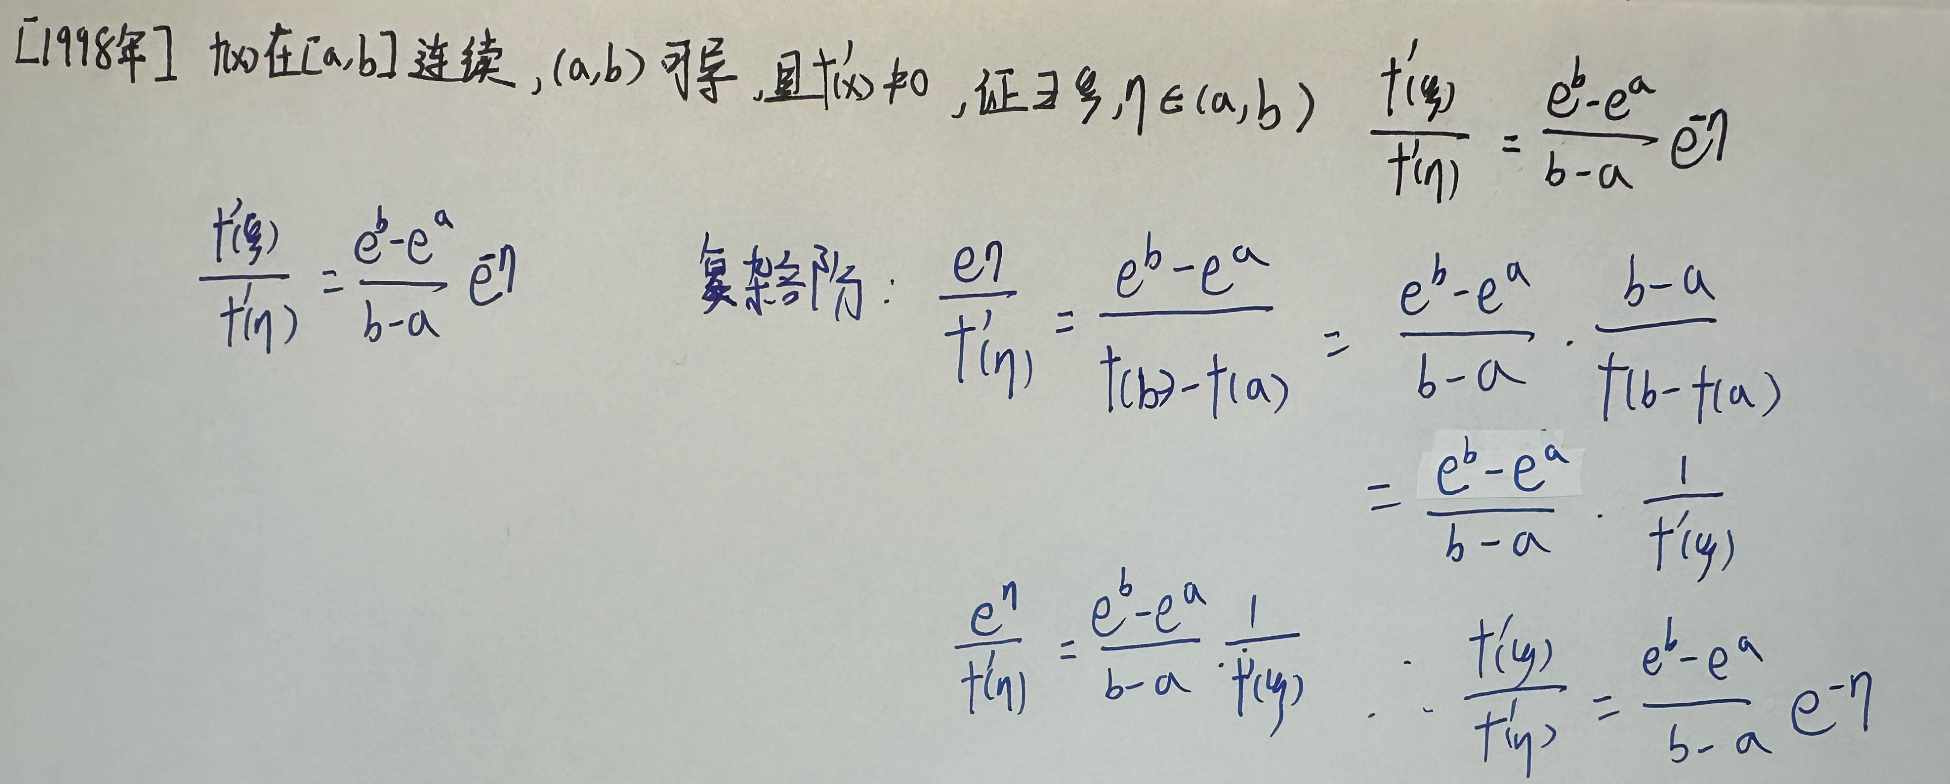 [1998年] f(x)在[a,b]连续,(a,b)可导,且f'(x)≠0,证∃ξ,η∈(a,b) f'(ξ)/f'(η) = (e^b-e^a)/(b-a) e^-η
f'(ξ)/f'(η) = (e^b-e^a)/(b-a) e^-η
复杂部分: e^η/f'(η) = (e^b-e^a)/(f(b)-f(a)) = (e^b-e^a)/(b-a) · (b-a)/(f(b-f(a))
= (e^b-e^a)/(b-a) · 1/f'(ξ)
e^η/f'(η) = (e^b-e^a)/(b-a) · 1/f'(ξ) ∴ f'(ξ)/f'(η) = (e^b-e^a)/(b-a) e^-η